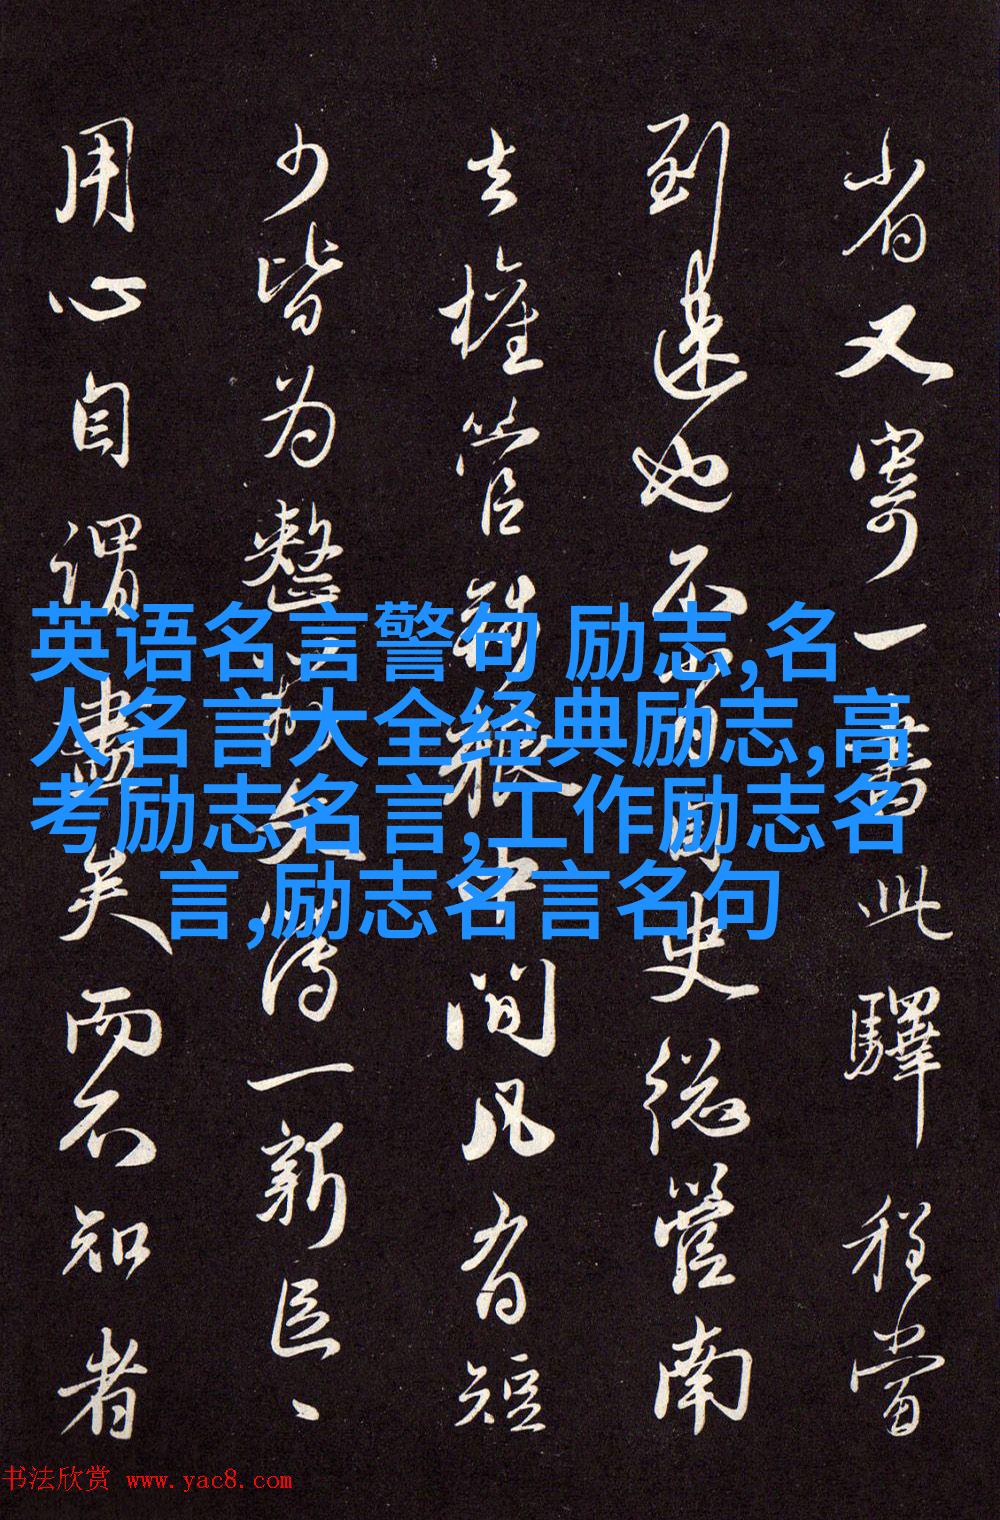 省又寄一書此驛程當
到速也不自史總管南
去權管錢糧中間凡有短
少皆為整文簿一新臣、
用心自謂盡矣而不知者
英语名言警句 励志,名
人名言大全经典励志,高
考励志名言,工作励志名
言,励志名言名句
书法欣赏 www.yac8.com